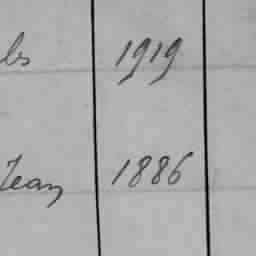 ls 1919
Jean 1886